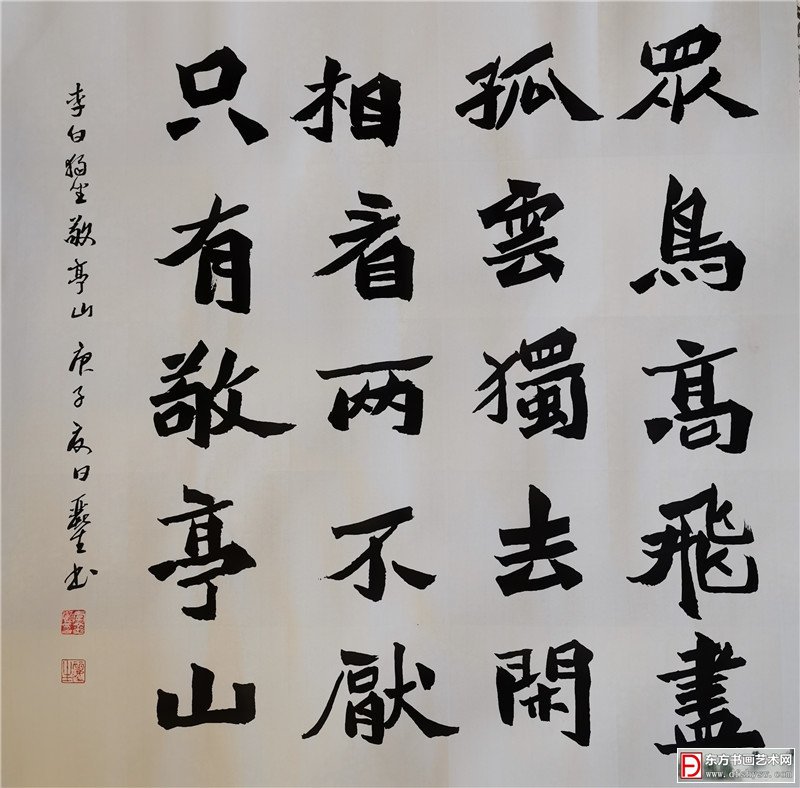 眾鳥高飛盡
孤雲獨去閑
相看两不厭
只有敬亭山
李白獨坐敬亭山 庚子夏日
东方书画艺术网
www.dfshysw.com